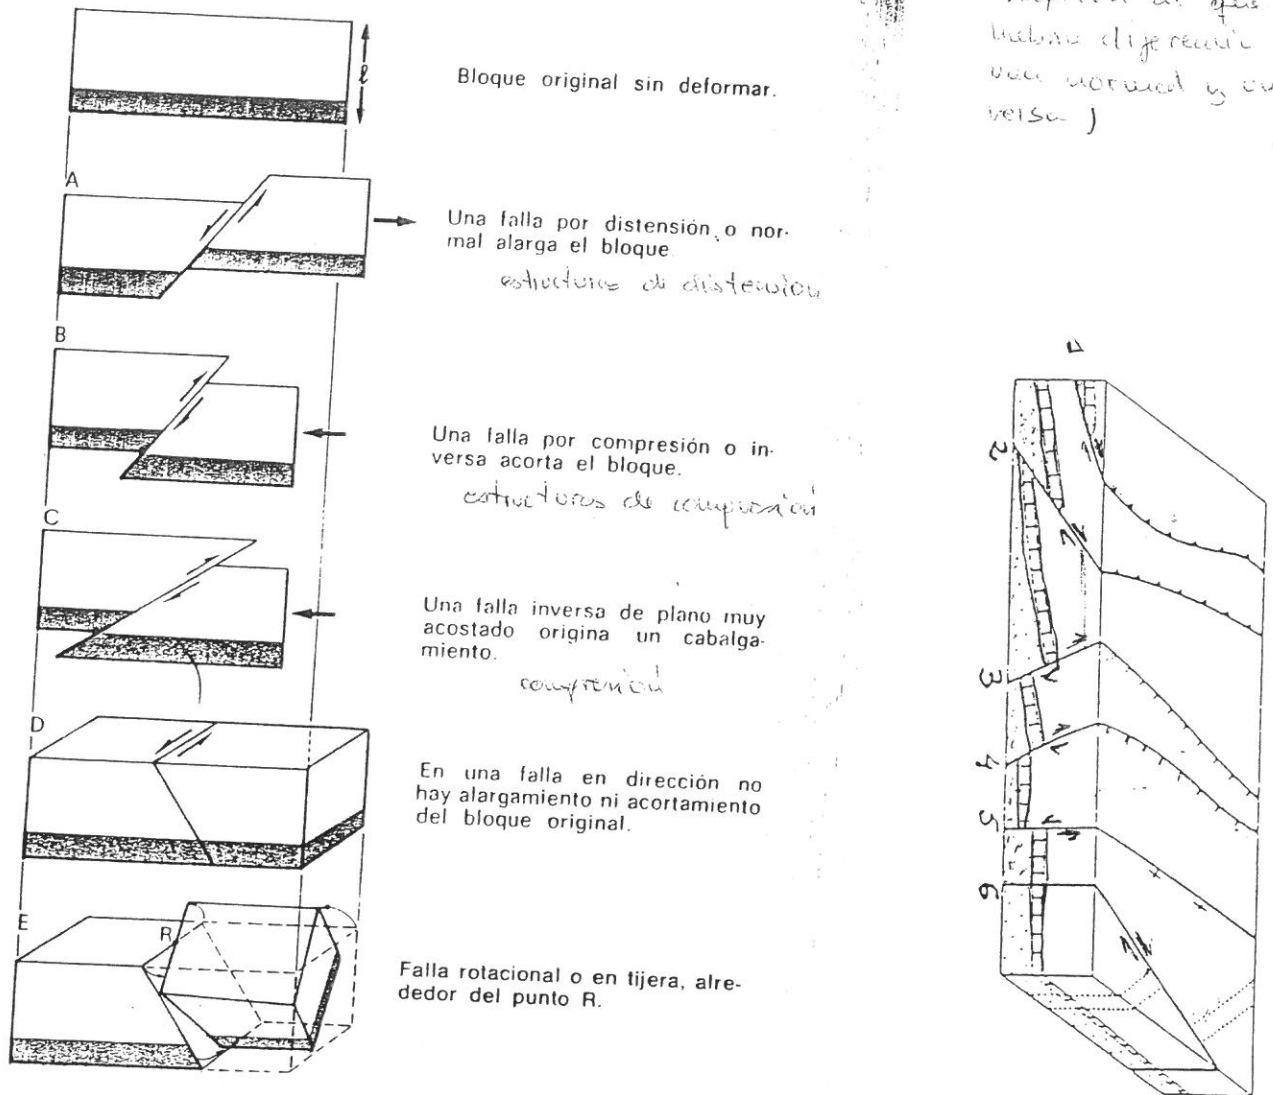 l
Bloque original sin deformar.
A
Una falla por distensión o nor-
mal alarga el bloque
estructuras de distension
B
Una falla por compresión o in-
versa acorta el bloque.
estructuras de compresión
C
Una falla inversa de plano muy
acostado origina un cabalga-
miento.
compresión
D
En una falla en dirección no
hay alargamiento ni acortamiento
del bloque original.
E
R
Falla rotacional o en tijera, alre-
dedor del punto R.
que
normal y
versa)
1
2
3
4
5
6